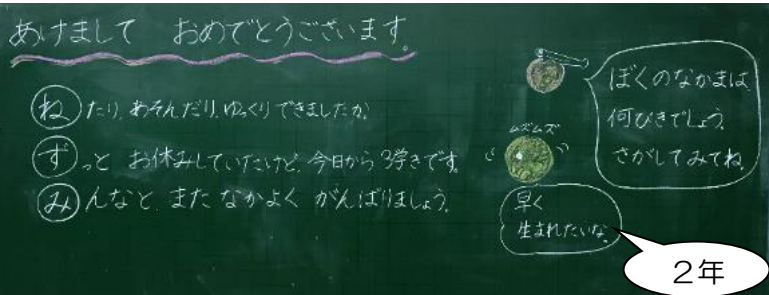 あけまして おめでとうございます。
ねたり、あそんだり、ゆっくりできましたか。
ずっと お休みしていたけど、今日から3学きです。
みんなと、また なかよく がんばりましょう。
ぼくのなかまは
何びきでしょう。
さがしてみてね。
ムズムズ
早く
生まれたいな。
2年